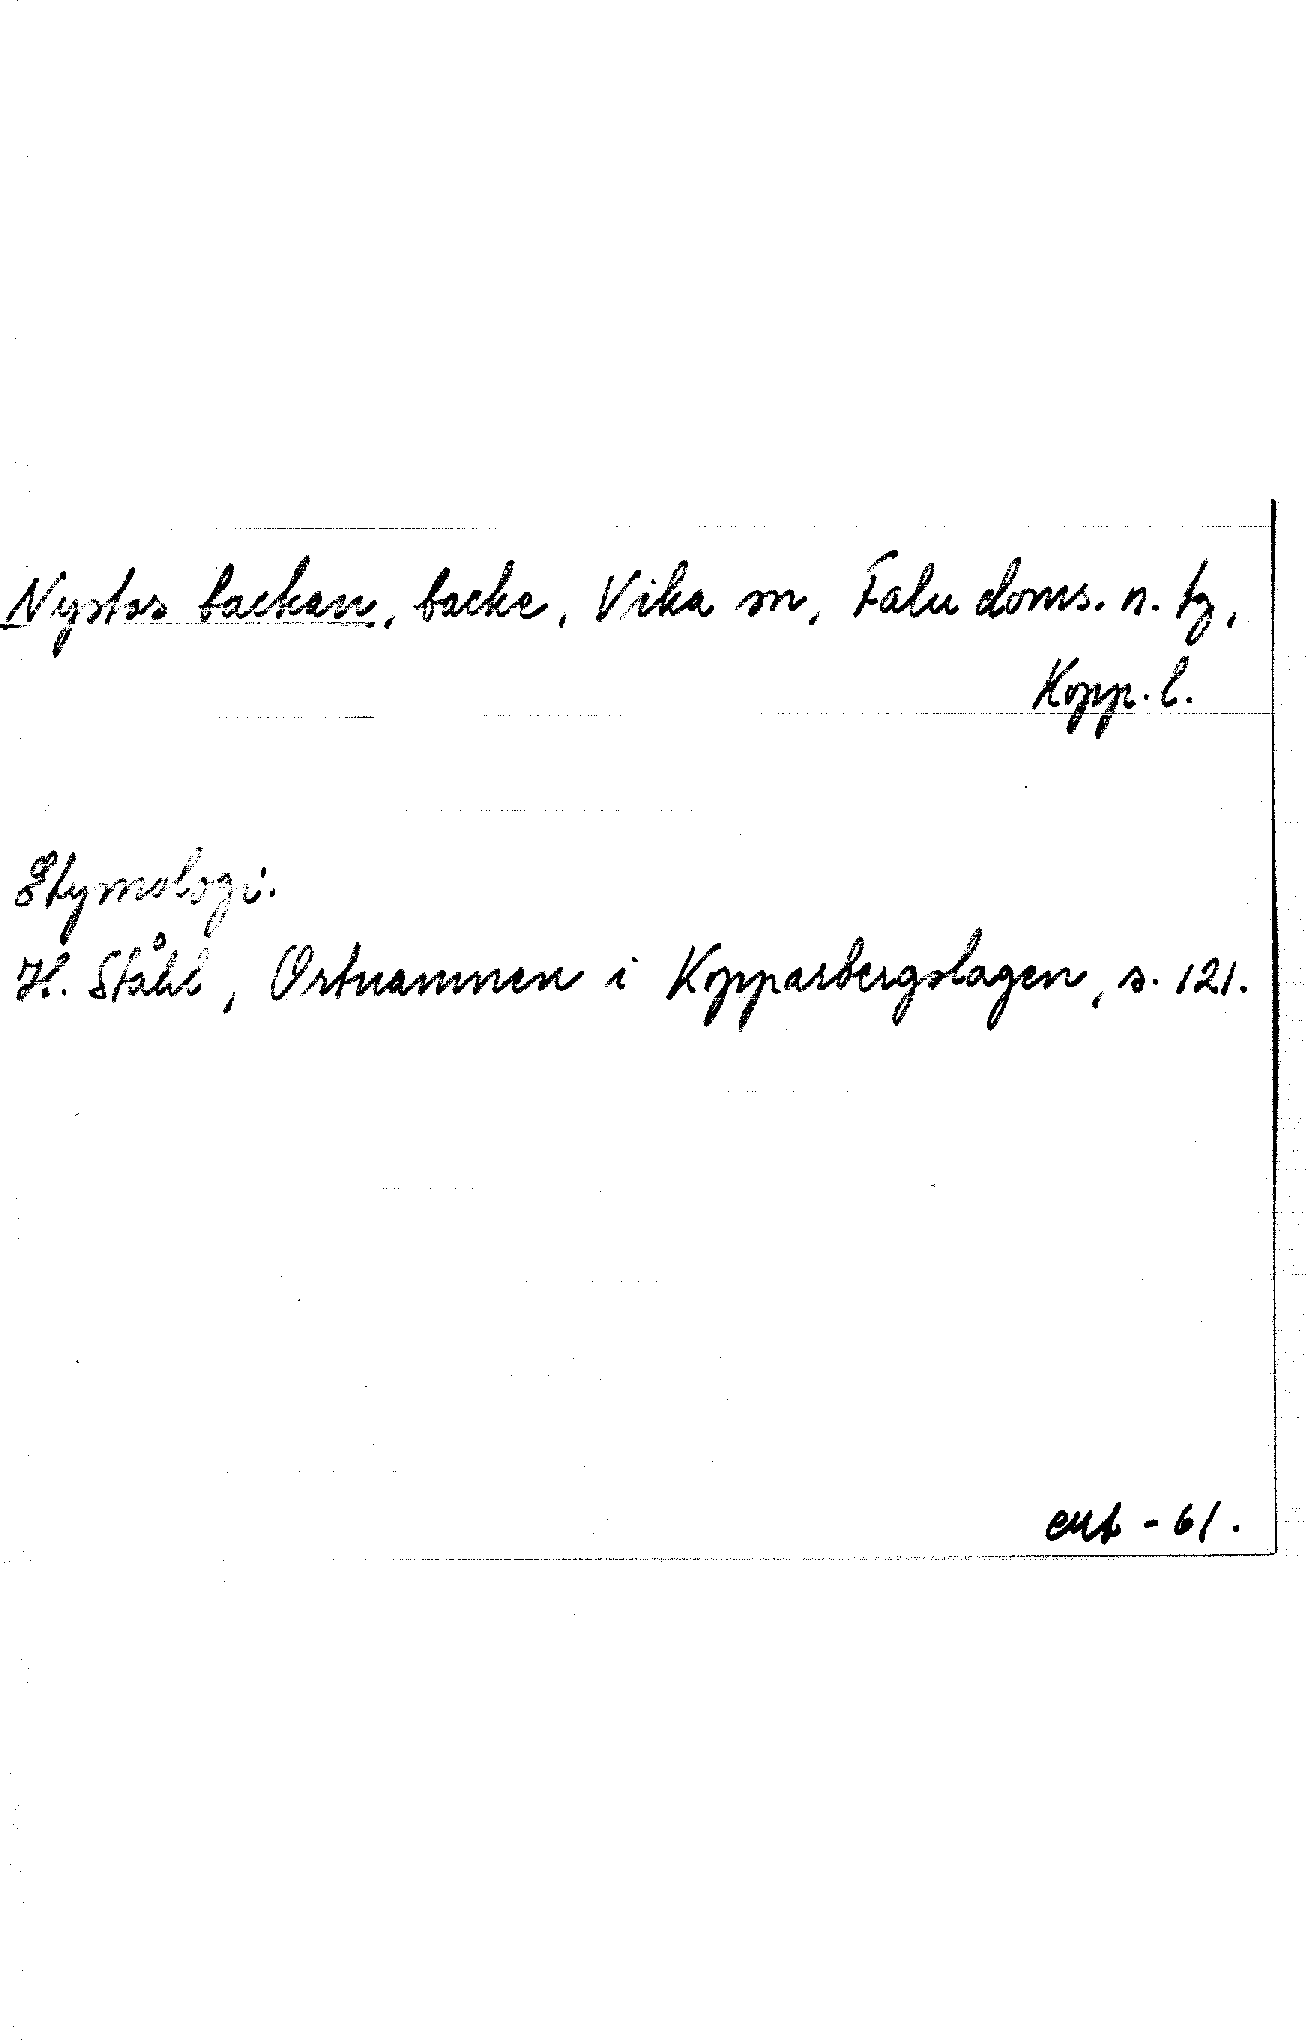 Nystos backan, backe, Vika sn, Falu doms. n. tg,
Kopp. l.
Etymologi.
H. Ståhl, Ortnamnen i Kopparbergslagen, s. 121.
- 61.